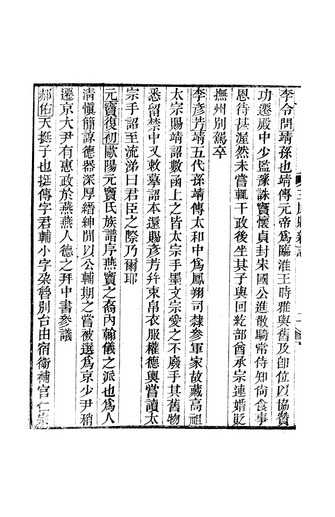 李令問靖孫也靖傳元帝爲臨淮王時雅與舊及卽位以協贊
功遷殿中少監豫誅竇懷貞封宋國公進散騎常侍知尙食事
恩待甚渥然未嘗輒干政後坐其子與回紇部酋承宗連婚貶
撫州別駕卒
李彦芳靖五代孫靖傳太和中爲鳳翔司隷參軍家故藏高祖
太宗賜靖詔數函上之皆太宗手墨文宗愛之不廢手其舊物
悉留禁中又敕摹詔本還賜彦芳幷束帛衣服權德輿嘗讀太
宗手詔至流涕曰君臣之際乃爾耶
元竇復初歐陽元竇氏族譜序燕竇之裔內翰儀之派也爲人
淸愼簡諒德器深厚縉紳閒以公輔期之嘗被選爲京少尹稍
遷京大尹有惠政於燕燕人德之拜中書參議
郝佑天挺子也挺傳字君輔小字朶魯別台由宿衞補官仁宗
三原縣新志